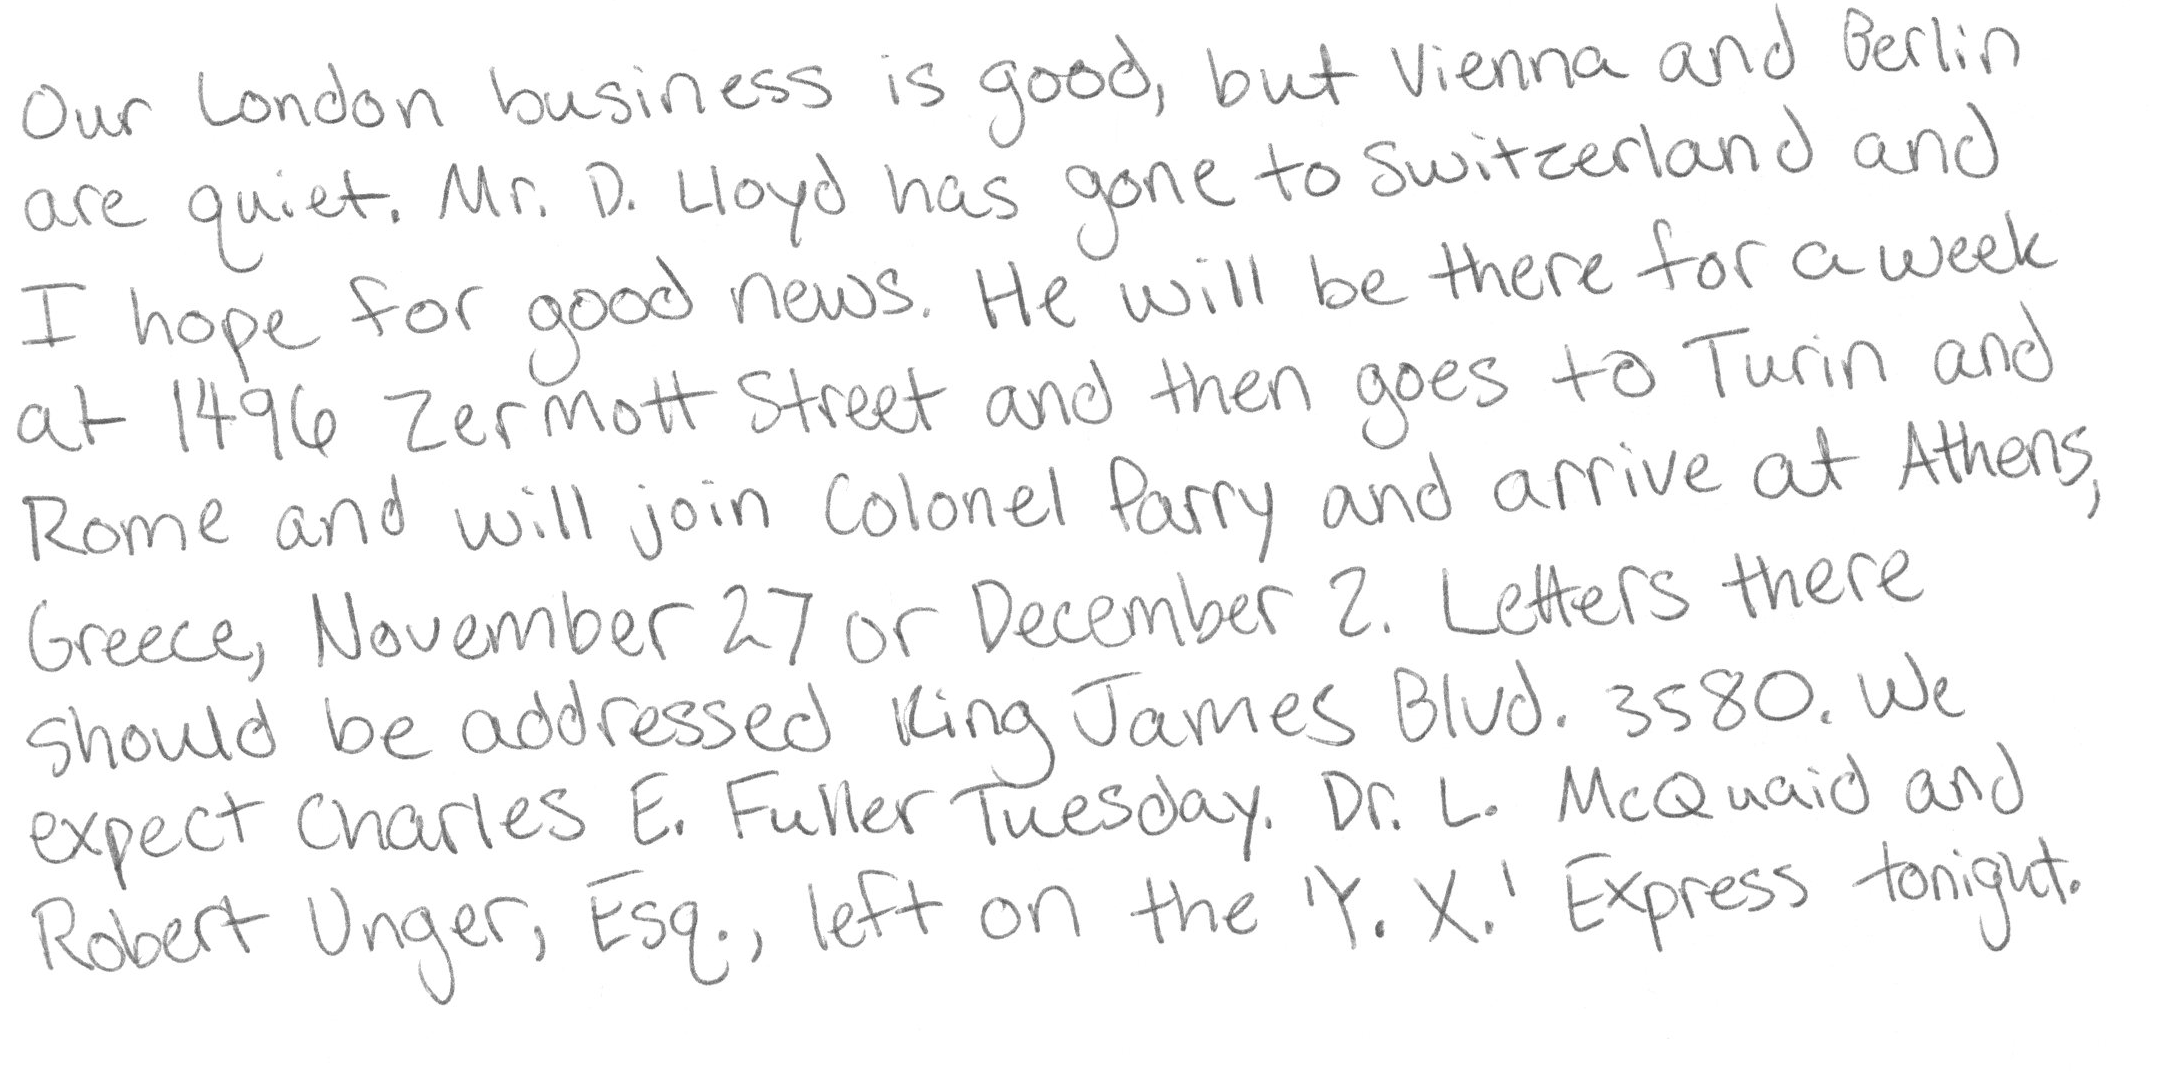 Our London business is good, but Vienna and Berlin
are quiet. Mr. D. Lloyd has gone to Switzerland and
I hope for good news. He will be there for a week
at 1496 Zermott Street and then goes to Turin and
Rome and will join Colonel Parry and arrive at Athens,
Greece, November 27 or December 2. Letters there
should be addressed King James Blvd. 3580. We
expect Charles E. Fuller Tuesday. Dr. L. McQuaid and
Robert Unger, Esq., left on the 'Y. X.' Express tonight.